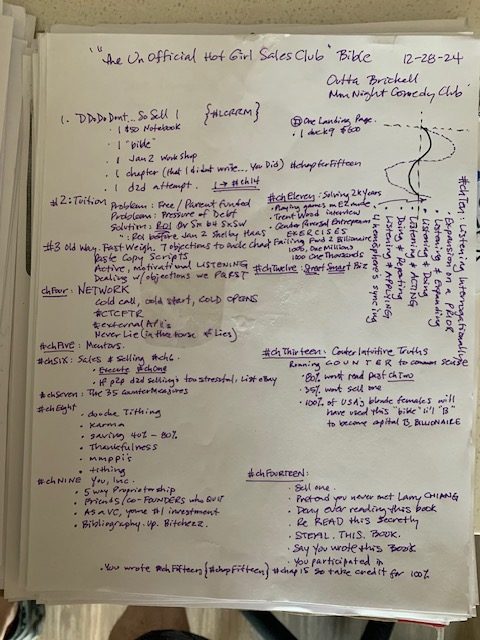 "the UnOfficial Hot Girl Sales Club" Bible 12-28-24
Outta Brickell
Mon Night Comedy Club
1. "D DoDoDont... So Sell 1 {#LCRRM}
· 1 $50 Notebook
· 1 "bible"
· 1 Jan 2 Workshop
· 1 chapter (that I didnt write... You Did) #chapterFifteen
· 1 d2d attempt. 1 → #ch14
One Landing Page.
· 1 duck9 $600
#2: Tuition Problem: Free / Parent funded
Problem: Pressure of Debt
Solution: ROI On Sm b4 SxSw
· ROI before Jan 2 Shelby Haas
#3 Old Way. Fast Weigh. 7 objections to adk chad
Paste Copy Scripts
Active, Motivational LISTENING
Dealing w/ objections we PARST
chFour: NETWORK
Cold call, cold start, COLD OPENS
#CTCFTR
#external APIs
Never Lie (in the house of Lies)
#chFive: Mentors.
#chSIX: Sales & Selling #ch6.
· Execute #chOne
· If p2p d2d selling's too stressful, List eBay
#chSeven: The 35 counterMeasures
#chEight
· douche Tithing
· Karma
· saving 40% - 80%
· Thankfulness
· mmppi's
· tithing
#chNINE You, Inc.
· 5 way Proprietorship
· Friends/co-FOUNDERS who QUIT
· AS a VC, youre #1 investment
· Bibliography. up. Bitchezz.
#chEleven: Solving 2K Years
· Playing games in EZ mode
· Trent Wood interview
· Center Parental Entrepreneur
EXERCISES
Failing Fwd 2 Billionaire
100%, One Millions
1000 One Thousands
#chTwelve: Street Smart Biz
#chTen: Listening Interrogationally
· Expansion on a PRIOR
· Listening & Expanding
· Listening & Doing
· Listening & ACTING
· Doing & Reporting
· Listening & APPLYING
4 hemisphere's syncing
#chThirteen: Conter Intuitive Truths
Running COUNTER to common sense
· 80% wont read past chTwo
· 35% wont sell one
· 100% of USA's blonde females will
have used this "bible" li'l "B"
to become capital B, BILLIONAIRE
#chFOURTEEN:
· Sell one.
· Pretend you never met Larry CHIANG
· Deny ever reading this book
· Re READ this secretly
· STEAL. THIS. BOOK.
· Say you wrote this Book
· You participated in
· You wrote #chFifteen {#chapFifteen} #chap15 so take credit for 100%